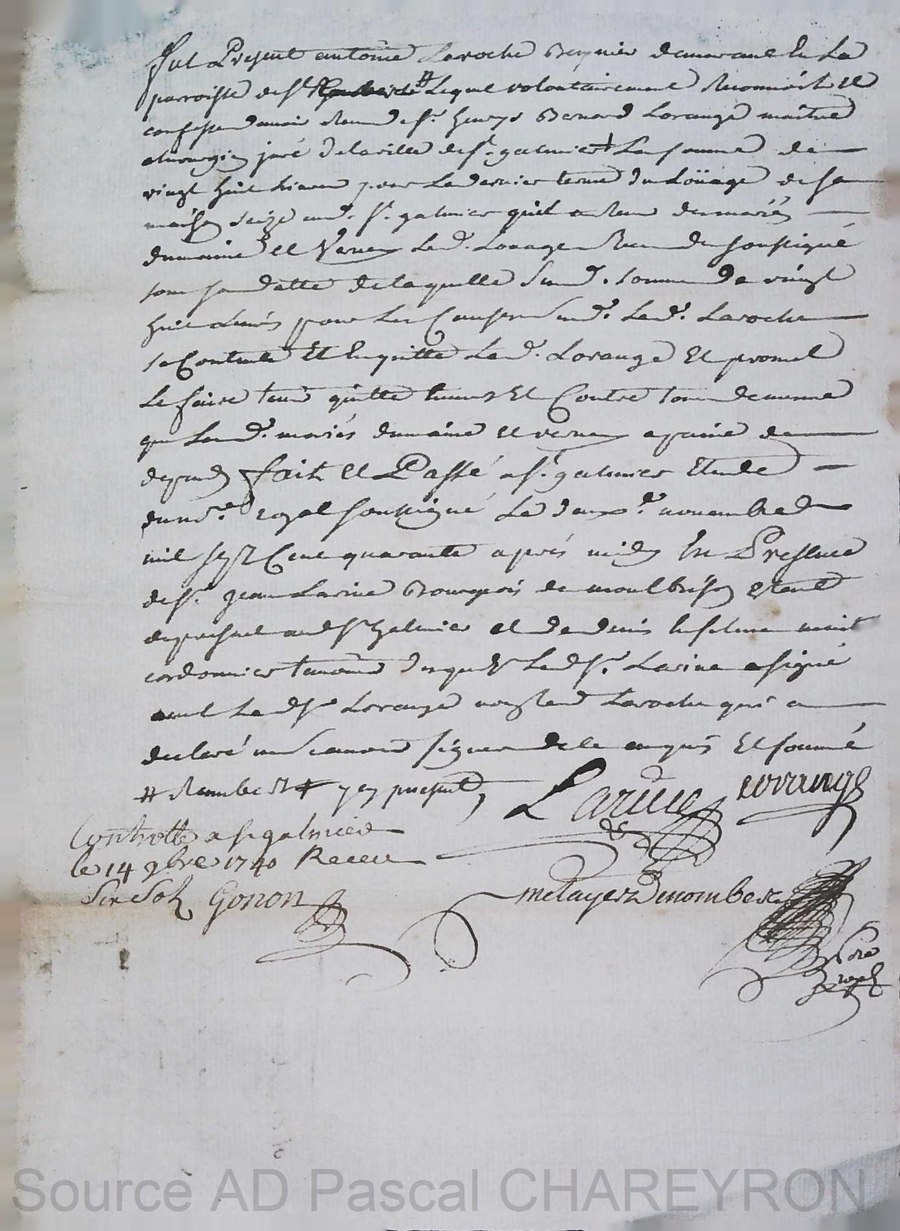 fut Present antoine Laroche demeurant En La
parroisse de St. Lequel volontairement Reconnoit et
confesse avoir Receu de Sr. henrys Benard Lorange maitre
chirurgien juré de la ville de St. galmier La somme de
vingt huit livres pour Le dernier terme du Loüage de sa
maison size aud. St. galmier quil a des mariés
dumaine et Verney Led. Louage du soussigné
de laquelle Susd. somme de vingt
huit livres pour Les Causes susd. Led. Laroche
se Contente Et En quitte Led. Lorange Et promet
Le faire tenir quitte Envers Et Contre tous de mesme
que Lesd. mariés dumaine et verney a peine de
depends fait et Passé a St. galmier Etude
du nore. royal soussigné Le deuxe. novembre
mil sept Cent quarante apres midy En Presence
de Sr. jean Larüe Bourgeois de montbrison Etant
de present aud. St. Galmier et de denis
cordonnier temoins desquels Led. Sr. Larüe a signé
avec Led. Sr. Lorange non Led. Laroche qui a
declaré ne scavoir signer de ce enquis Et sommé
# Rambert #
Larüe Lorange
Controllé a St galmier
le 14 9bre 1740 Receu
Six Sols Gonon
metayer Dinombe
nore
royal
Source AD Pascal CHAREYRON